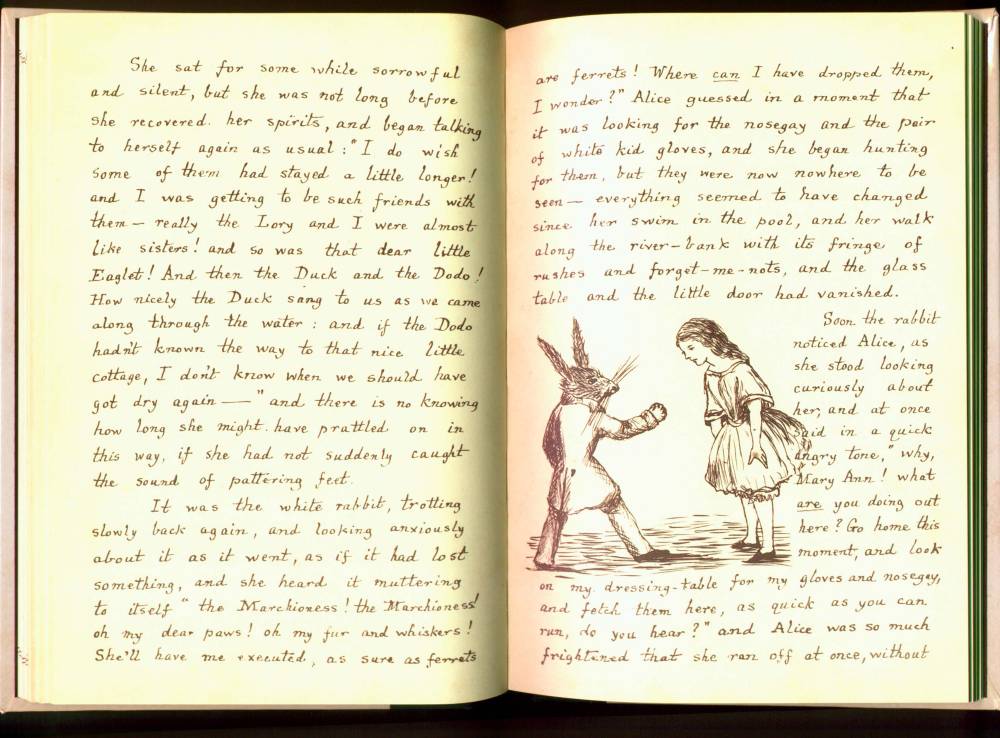 She sat for some while sorrowful
and silent, but she was not long before
she recovered her spirits, and began talking
to herself again as usual: "I do wish
some of them had stayed a little longer!
and I was getting to be such friends with
them — really the Lory and I were almost
like sisters! and so was that dear little
Eaglet! And then the Duck and the Dodo!
How nicely the Duck sang to us as we came
along through the water: and if the Dodo
hadn't known the way to that nice little
cottage, I don't know when we should have
got dry again —" and there is no knowing
how long she might have prattled on in
this way, if she had not suddenly caught
the sound of pattering feet.
It was the white rabbit, trotting
slowly back again, and looking anxiously
about it as it went, as if it had lost
something, and she heard it muttering
to itself "the Marchioness! the Marchioness!
oh my dear paws! oh my fur and whiskers!
She'll have me executed, as sure as ferrets
are ferrets! Where can I have dropped them,
I wonder?" Alice guessed in a moment that
it was looking for the nosegay and the pair
of white kid gloves, and she began hunting
for them, but they were now nowhere to be
seen — everything seemed to have changed
since her swim in the pool, and her walk
along the river-bank with its fringe of
rushes and forget-me-nots, and the glass
table and the little door had vanished.
Soon the rabbit
noticed Alice, as
she stood looking
curiously about
her, and at once
said in a quick
angry tone, "why,
Mary Ann! what
are you doing out
here? Go home this
moment, and look
on my dressing-table for my gloves and nosegay,
and fetch them here, as quick as you can
run, do you hear?" and Alice was so much
frightened that she ran off at once, without